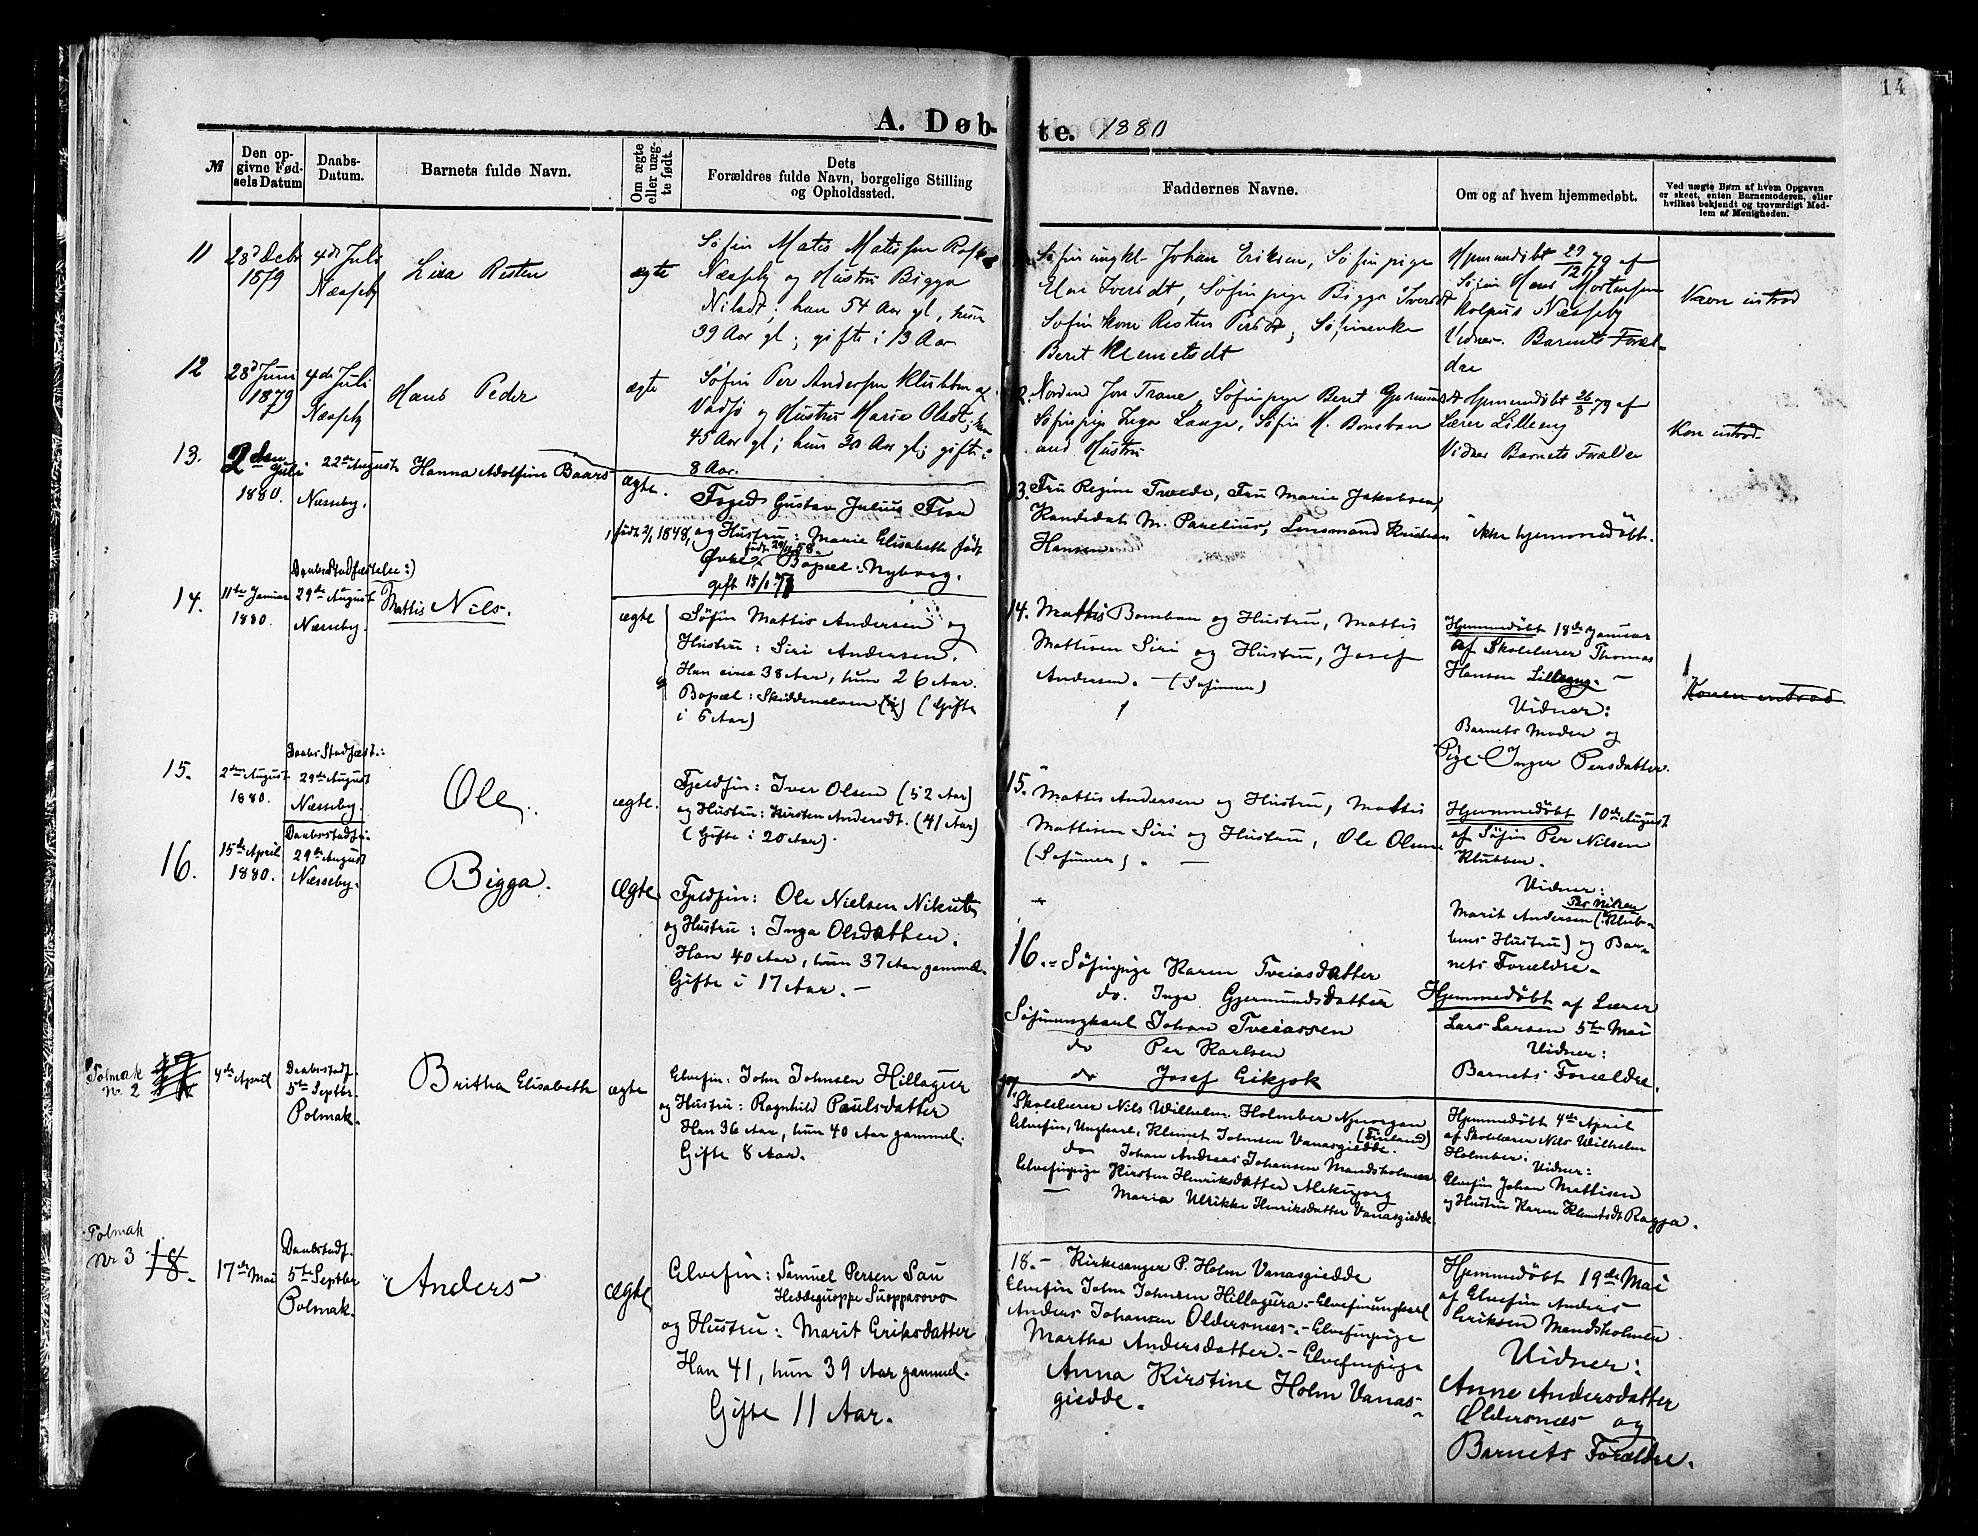 14
A. Døb-te. 1880
№
Den opgivne Fødsels Datum
Daabs-Datum.
Barnets fulde Navn.
Om ægte eller uægte født.
Dets
Forældres fulde Navn, borgelige Stilling
og Opholdssted.
Faddernes Navne.
Om og af hvem hjemmedøbt.
Ved uægte Børn af hvem Opgaven
er skeet, enten Barnemoderen, eller
hvilket bekjendt og troværdigt Medlem
af Menigheden.
11
28d Debr
1879
4de Juli
Næsseby
Lisa Risten
ægte
Søfin Matis Matisen
Næsseby og Hustru Bigga
Nilsdt; han 54 Aar gl, hun
39 Aar gl; gifte i 13 Aar
Søfinungkl Johan Eriksen, Søfinpige
Elen Iversdt, Søfinpige Bigga Iversdt
Søfinkone Risten Persdt, Søfinenke
Beret Klemetsdt
Hjemmedøbt 29/12 79 af
Søfin Hans Mortensen
Næsseby
Vidner Barnets Foræl-
dre
Navn introd
12
28d Juni
1879
4de Juli
Næsseby
Hans Peder
ægte
Søfin Per Andersen Klubben af
Vadsø og Hustru Maria Olsdt; han
45 Aar gl; hun 30 Aar gl; gifte i
8 Aar.
Nordm Jon Trane, Søfinpige Beret
Søfinpig Inga Lange, Søfin M. Bomban
and Hustru
Hjemmedøbt 26/8 79 af
Lærer Lilleng
Vidner Barnets Forældre
Kon introd.
13.
2den Juli
1880.
22de Auguste
Næsseby.
Hanna Adolfine Baars
ægte.
Foged Gustav Julius
født 2/1 1848, og Hustru: Marie Elisabeth født
Bopæl: Nyborg.
gift 15/1 78
13. Fru Regine Tvede, Fru Marie Jakobsen,
Kandidat M. Parelius, Lensmand Kristian
Hansen
ikke hjemmedøbt.
14.
11te Januar
1880.
Daabs Stadfæstelse:)
29de August
Næsseby.
Mattis Nils.
ægte
Søfin Mattis Andersen og
Hustru: Siri Andersen.
Han circa 38 Aar, hun 26 Aar.
Bopæl: Skiddenelven (Gifte
i 5 Aar)
14. Mattis Bomban og Hustru, Mattis
Mattisen Siri og Hustru, Josef
Andersen. — (Søfinner)
Hjemmedøbt 18de Januar
af Skolelærer Thomas
Hansen Lilleng. —
Vidner:
Barnets Moder og
Pige Inger Persdatter.
Konen introd.
15.
2den August
1880.
Daabs Stadfæst.:
29de August
Næsseby.
Ole.
ægte.
Fjeldfin: Iver Olsen (52 Aar)
og Hustru: Kirsten Andersdt. (41 Aar)
(Gifte i 20 Aar).
15. Mattis Andersen og Hustru, Mattis
Mattisen Siri og Hustru, Ole Olsen
(Søfinner). —
Hjemmedøbt 10de August
af Søfin Per Nilsen
Klubben.
Vidner:
Per Nilsen
Marit Andersen (Klub-
bens Hustru) og Bar-
nets Forældre —
16.
15de April
1880.
Daabsstadf:
29de August
Næsseby.
Bigga.
Ægte.
Fjeldfin: Ole Nielsen Nikut
og Hustru: Inga Olsdatter.
Han 40 Aar, hun 37 Aar gammel.
Gifte i 17 Aar. —
16. — Søfinpige Karen Tveiasdatter
do. Inga Gjermundsdatter
Søfinungkarl Johan Tveiassen
do Per Karlsen
do Josef Eikjok
Hjemmedøbt af Lærer
Lars Larsen 5te Mai
Vidner:
Barnets Forældre.
Polmak
Nr. 2
17
4de April
Daabsstadf.
5te Septbr.
Polmak.
Britha Elisabeth
ægte
Elvefin: John Johnsen Hillagur
og Hustru: Ragnhild Paulsdatter
Han 36 Aar, hun 40 Aar gammel.
Gifte 8 Aar.
17. Skolelærer Nils Wilhelm. Holmber Njuorgan
(Finland)
Elvefin, Ungkarl, Klemet Johnsen Vanasgiedde.
do Johan Andreas Johansen Mandsholmen
Elvefinpige Kirsten Henriksdatter
— Maria Ulrikke Henriksdatter Vanasgiedde.
Hjemmedøbt 4de April
af Skolelærer Nils Wilhelm
Holmber.
Vidner:
Elvefin Johan Mattisen
og Hustru Karen Klemetsdt Ragja.
Polmak
Nr 3
18.
17de Mai
Daabstadf.
5te Septbr
Polmak.
Anders
ægte
Elvefin: Samuel Persen Sau
Heddeguoppe Suopparovo
og Hustru: Marit Eriksdatter
Han 41, hun 39 Aar gammel.
Gifte 11 Aar.
18. — Kirkesanger P. Holm Vanasgiedde
Elvefin John Johnsen Hillagura — Elvefinungkarl
Anders Johansen Oldersnæs. — Elvefinpige
Martha Andersdatter. — Elvefinpige
Anna Kirstine Holm Vanas-
giedde.
Hjemmedøbt 19de Mai
af Elvefin Anders
Eriksen Mandsholmen
Vidner:
Anne Andersdatter
Oldersnæs og
Barnets Forældre.